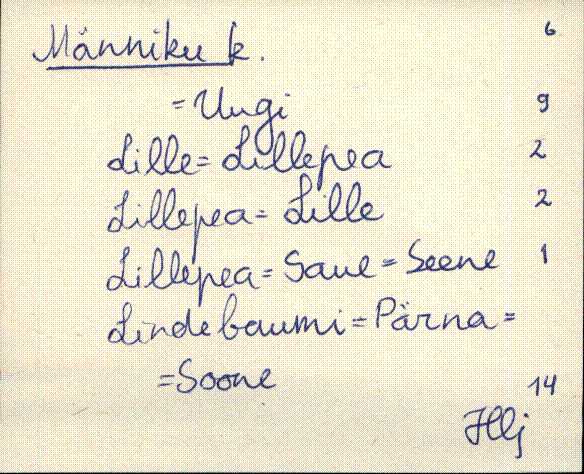 Männiku k. 6
= Uugi 9
Lille = Lillepea 2
Lillepea = Lille 2
Lillepea = Saue = Seene 1
Lindebaumi = Pärna =
= Soone 14